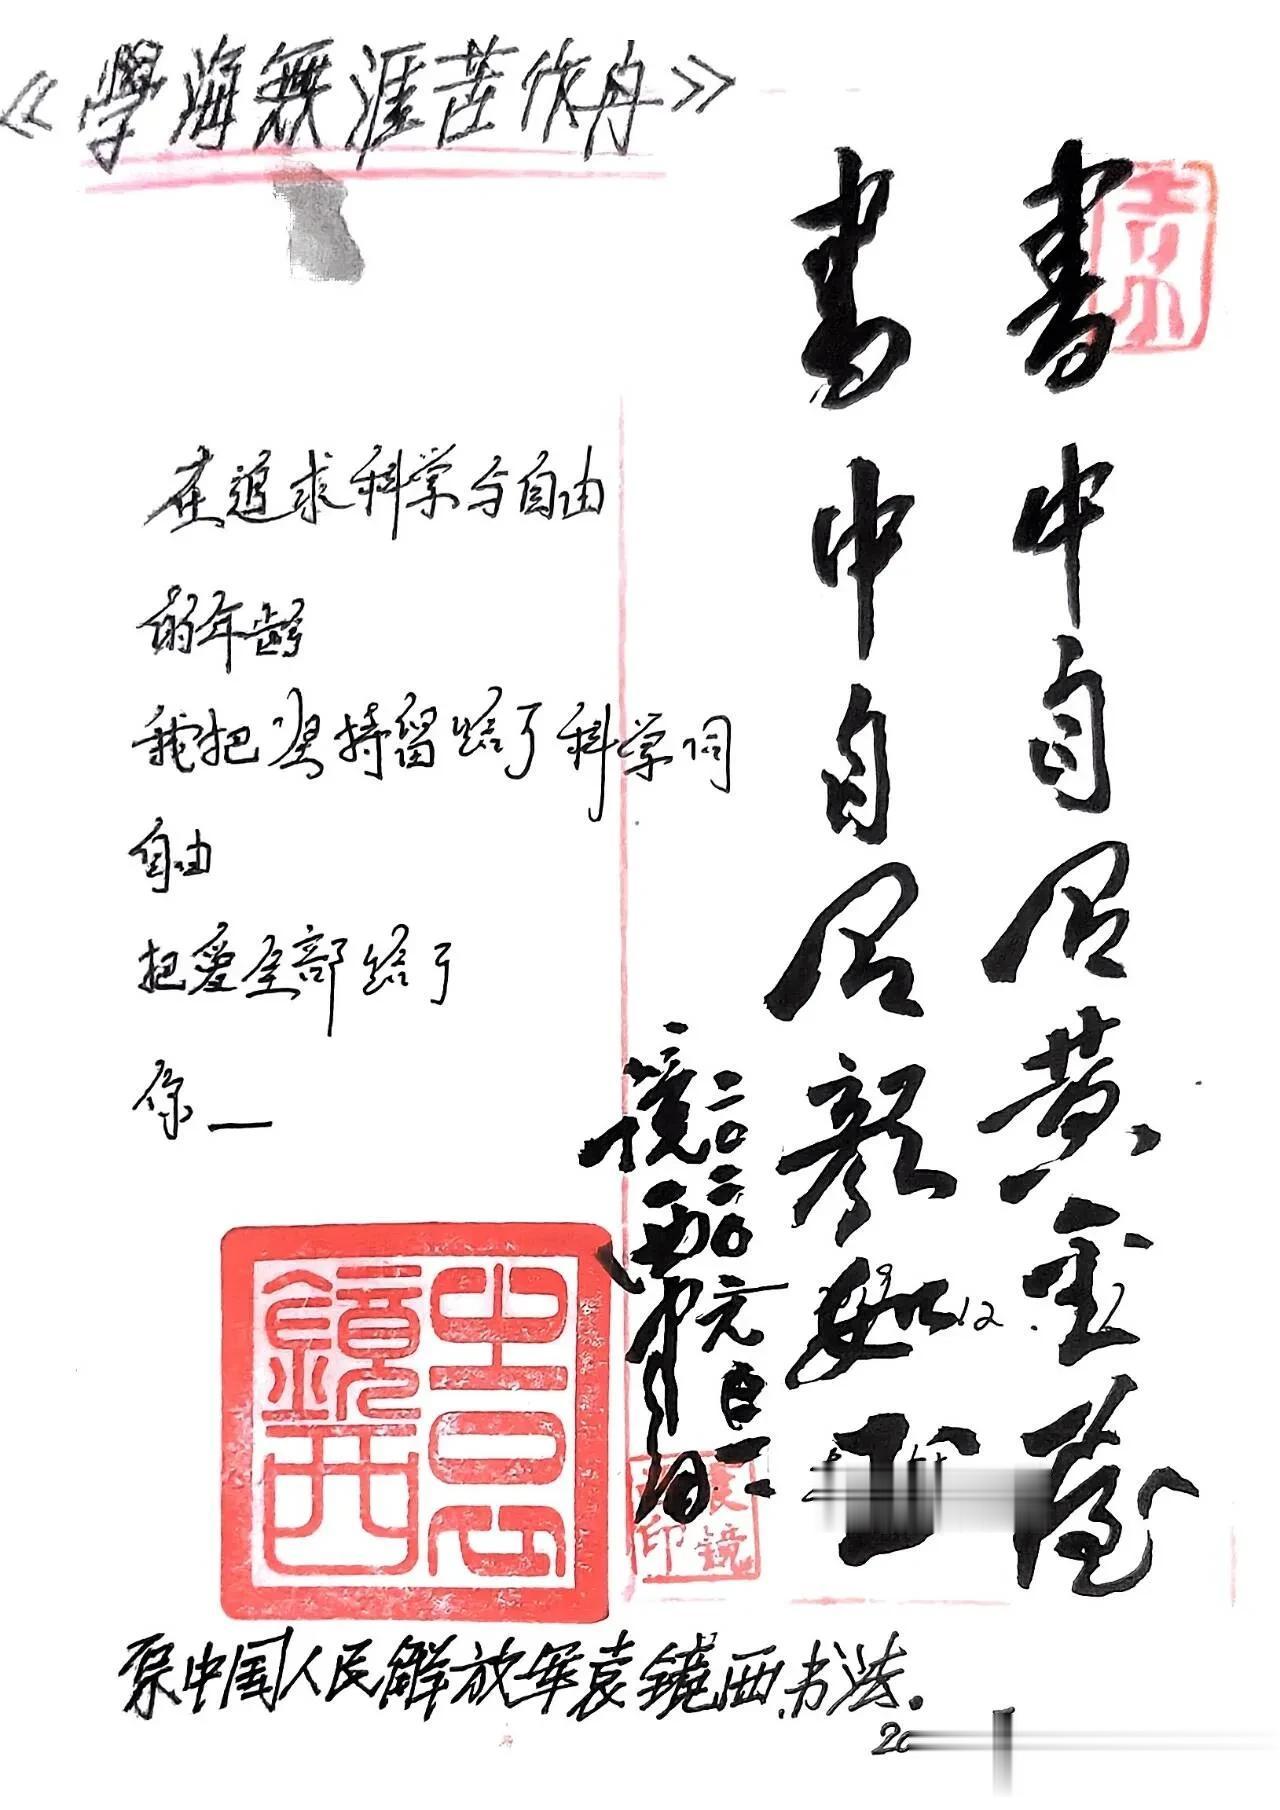 《學海無涯苦作舟》
袁
書中自有黄金屋
書中自有顏如玉
二〇二〇元旦
镜西
在追求科学与自由
的年龄
我把坚持留给了科学同
自由
把爱全部给了
你—
袁鏡西
中国人民解放军袁镜西书法.